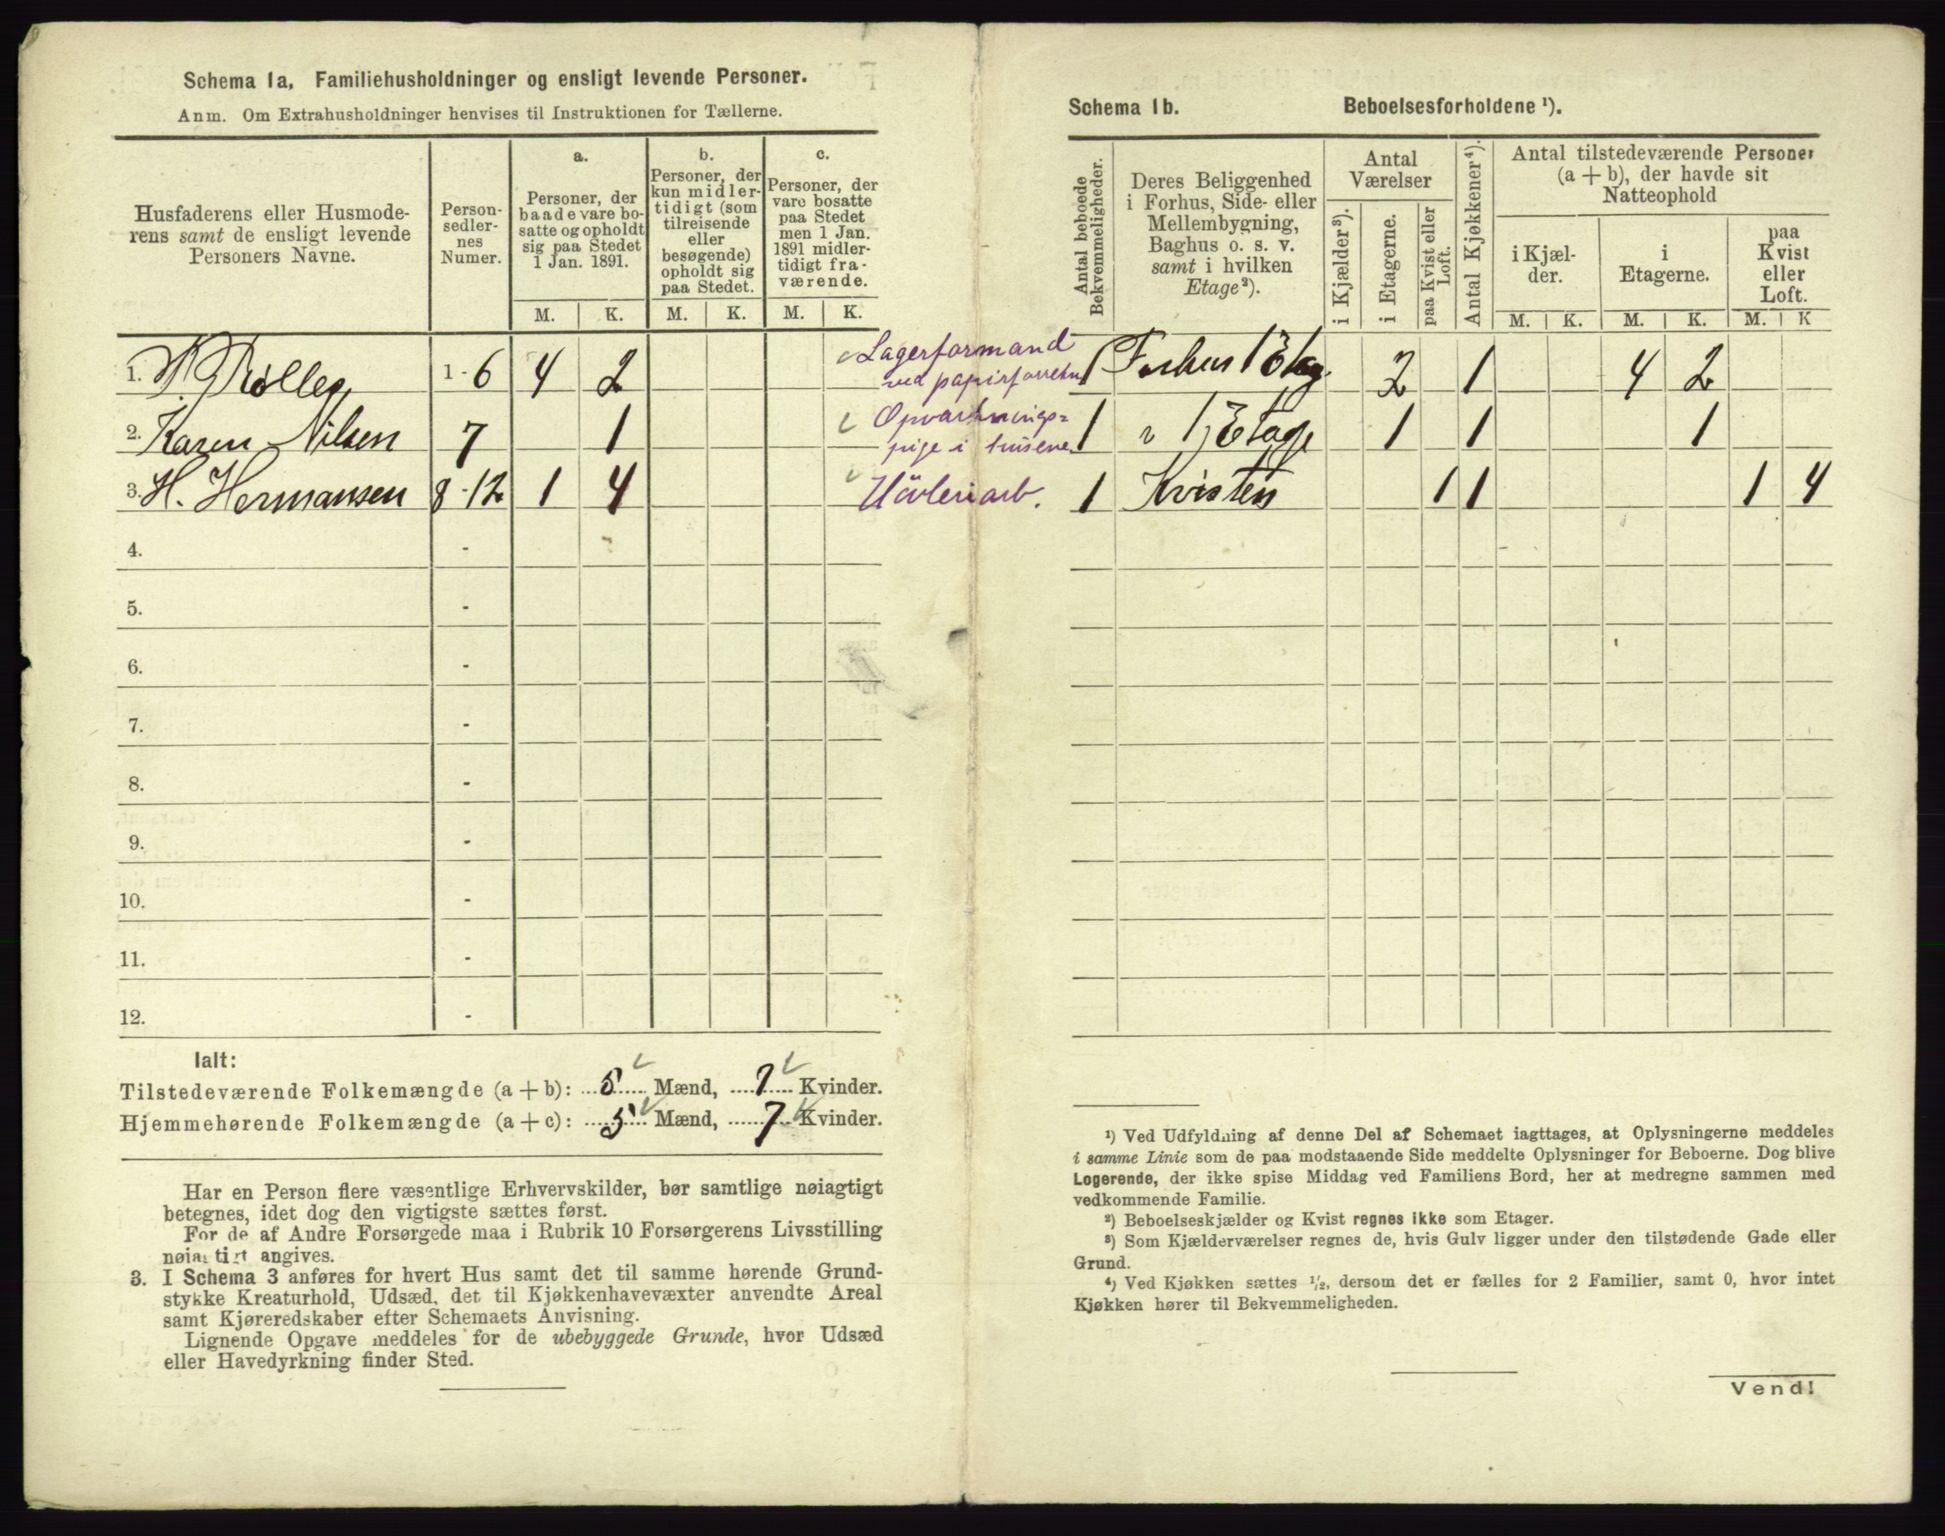 Schema 1a, Familiehusholdninger og ensligt levende Personer.
Anm. Om Extrahusholdninger henvises til Instruktionen for Tællerne.
Husfaderens eller Husmode-
rens samt de ensligt levende
Personers Navne.
Person-
sedler-
nes
Numer.
a.
Personer, der
baade vare bo-
satte og opholdt
sig paa Stedet
1 Jan. 1891.
b.
Personer, der
kun midler-
tidigt (som
tilreisende
eller
besøgende)
opholdt sig
paa Stedet.
c.
Personer, der
vare bosatte
paa Stedet
men 1 Jan.
1891 midler-
tidigt fra-
værende.
M. K. M. K. M. K.
1. 1-6 4 2 Lagerformand
ved papirforretn
2. Karen Nilsen 7 1 Opvartnings-
pige i husene
3. H. Hermansen 8-12 1 4 Hövleriarb.
4. -
5. -
6. -
7. -
8. -
9. -
10. -
11. -
12. -
Ialt:
Tilstedeværende Folkemængde (a+b): 5 Mænd, 7 Kvinder.
Hjemmehørende Folkemængde (a+c): 5 Mænd, 7 Kvinder.
Har en Person flere væsentlige Erhvervskilder, bør samtlige nøiagtigt
betegnes, idet dog den vigtigste sættes først.
For de af Andre Forsørgede maa i Rubrik 10 Forsørgerens Livsstilling
nøiagtigt angives.
3. I Schema 3 anføres for hvert Hus samt det til samme hørende Grund-
stykke Kreaturhold, Udsæd, det til Kjøkkenhavevæxter anvendte Areal
samt Kjøreredskaber efter Schemaets Anvisning.
Lignende Opgave meddeles for de ubebyggede Grunde, hvor Udsæd
eller Havedyrkning finder Sted.
Schema 1b. Beboelsesforholdene ¹).
Antal beboede
Bekvemmeligheder.
Deres Beliggenhed
i Forhus, Side- eller
Mellembygning,
Baghus o. s. v.
samt i hvilken
Etage²).
Antal
Værelser
i Kjælder³).
i Etagerne.
paa Kvist eller
Loft.
Antal Kjøkkener⁴).
Antal tilstedeværende Personer
(a+b), der havde sit
Natteophold
i Kjæl-
der.
i
Etagerne.
paa
Kvist
eller
Loft.
M. K. M. K. M. K
1 Forhus 1 Etag. 2 1 4 2
1 " 1 Etage 1 1 1
1 Kvisten 1 1 1 4
¹) Ved Udfyldning af denne Del af Schemaet iagttages, at Oplysningerne meddeles
i samme Linie som de paa modstaaende Side meddelte Oplysninger for Beboerne. Dog blive
Logerende, der ikke spise Middag ved Familiens Bord, her at medregne sammen med
vedkommende Familie.
²) Beboelseskjælder og Kvist regnes ikke som Etager.
³) Som Kjælderværelser regnes de, hvis Gulv ligger under den tilstødende Gade eller
Grund.
⁴) Ved Kjøkken sættes ¹/₂, dersom det er fælles for 2 Familier, samt 0, hvor intet
Kjøkken hører til Bekvemmeligheden.
Vend!